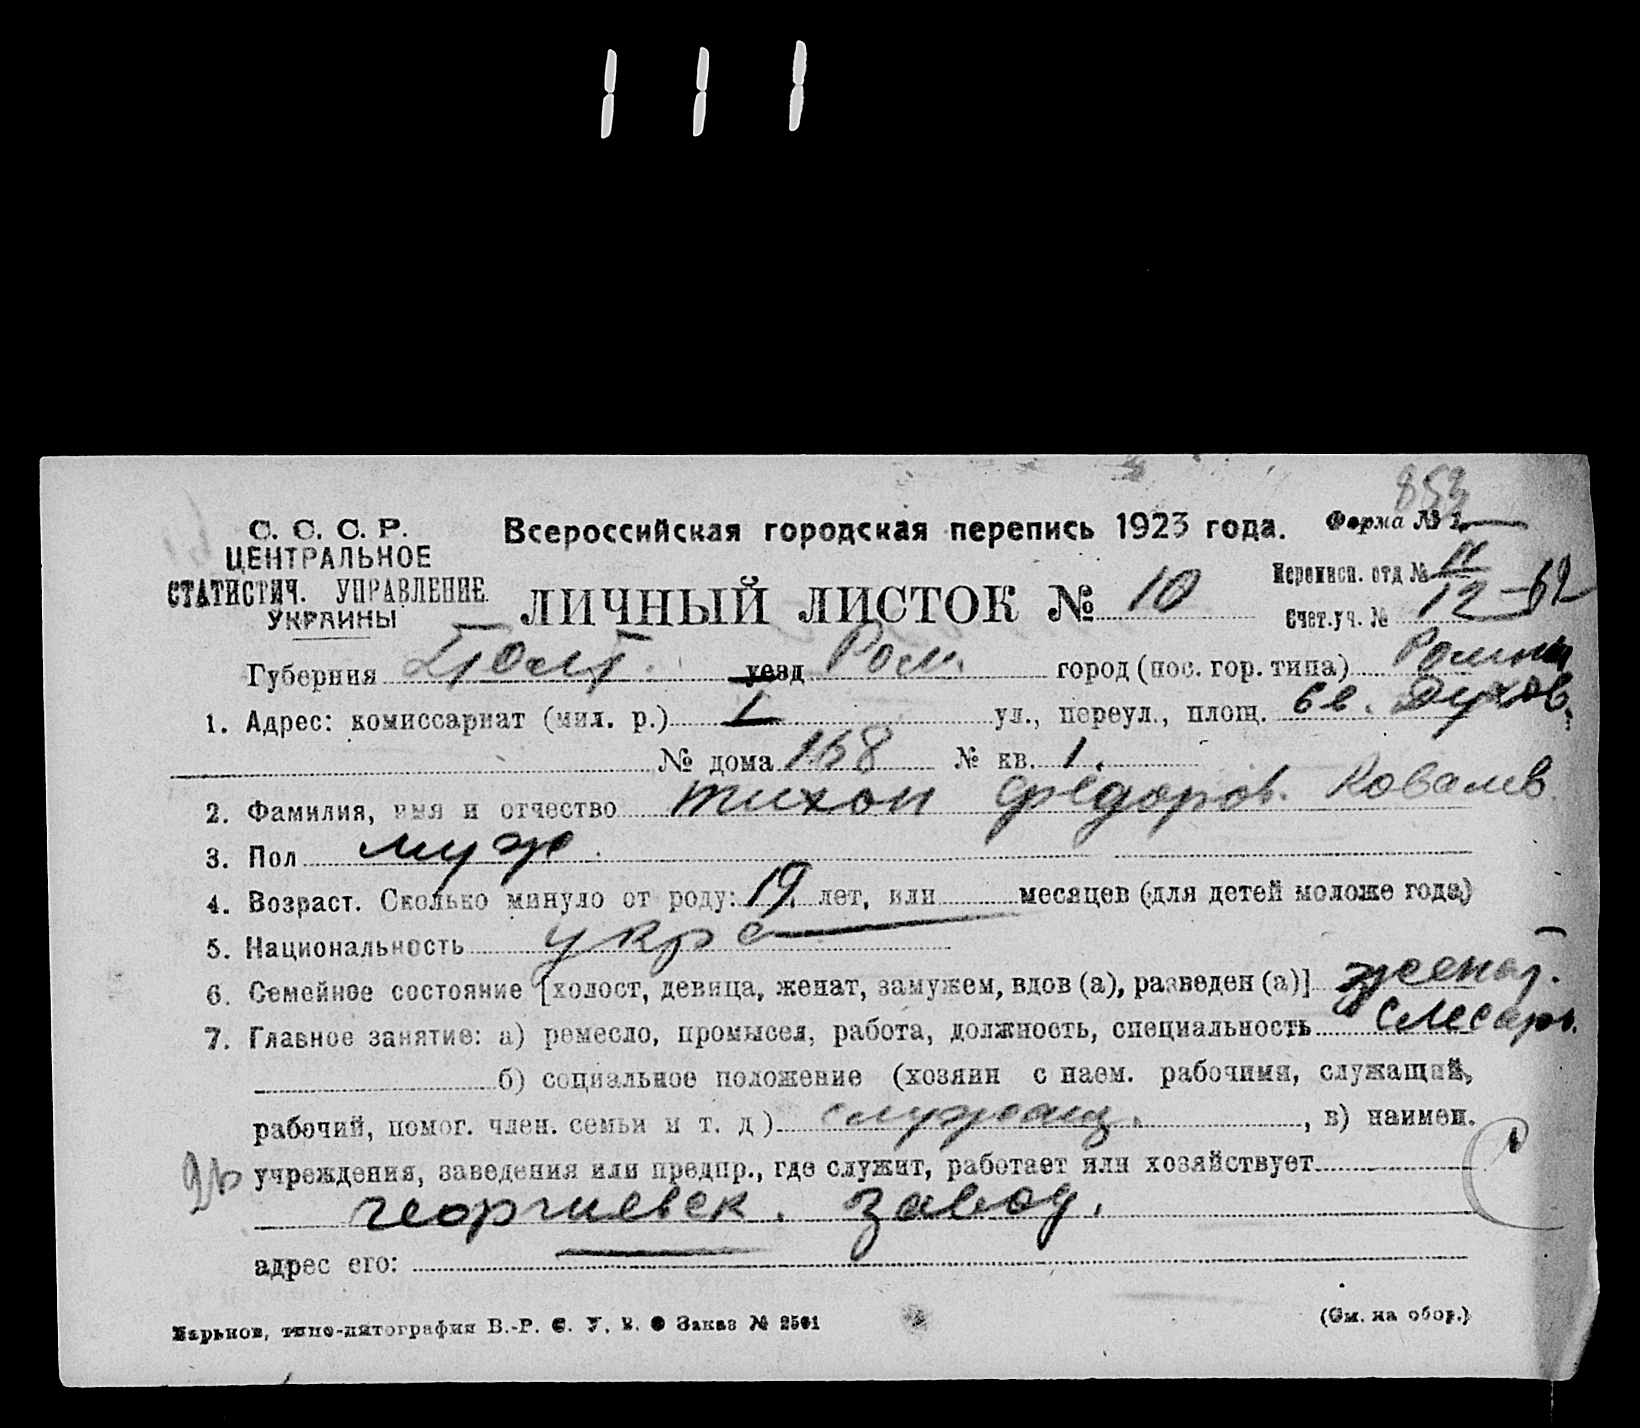 111
853
С. С. С. Р.
ЦЕНТРАЛЬНОЕ
СТАТИСТИЧ. УПРАВЛЕНИЕ
УКРАИНЫ
Всероссийская городская перепись 1923 года.
Форма № 1.
ЛИЧНЫЙ ЛИСТОК № 10
Перепись. отд №
Счет.уч. № 12-62
Губерния Полт. уезд Ром. город (пос. гор. типа) Ромны
1. Адрес: комиссариат (мил. р.) I ул., переул., площ. Св. Духов.
№ дома 168 № кв. 1.
2. Фамилия, имя и отчество Тихон Федоров. Ковалев
3. Пол муж.
4. Возраст. Сколько минуло от роду: 19 лет, или месяцев (для детей моложе года)
5. Национальность укра
6. Семейное состояние [холост, девица, женат, замужем, вдов (а), разведен (а)] женат.
7. Главное занятие: а) ремесло, промысел, работа, должность, специальность Слесарь.
б) социальное положение (хозяин с наем. рабочими, служащий,
рабочий, помог. член. семьи и т. д) служащ. , в) наимен.
учреждения, заведения или предпр., где служит, работает или хозяйствует
георгиевск. завод.
адрес его:
Харьков, типо-литография В.-Р. С. У. В. Заказ № 2501
(См. на обор.)